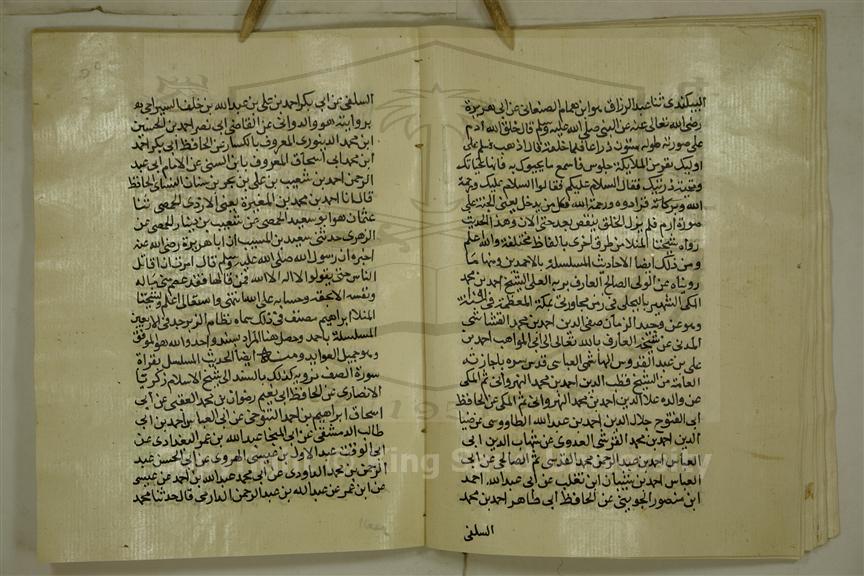 البيكندي ثنا عبد الرزاق هو ابن همام الصنعاني عن ابي هريرة
رضي الله تعالى عنه عن النبي صلى الله عليه وسلم قال خلق الله ادم
على صورته طوله ستون ذراعا فلما خلقه قال اذهب فسلم على
اوليك نفر من الملايكة جلوس فاسمع ما يحيونك به فانها تحيتك
وتحية ذريتك فقال السلام عليكم فقالوا السلام عليك ورحمة
الله وبركاته فزادوه ورحمة الله فكل من يدخل يعني الجنة على
صورة ادم فلم يزل الخلق ينقص بعد حتى الان وهذا الحديث
رواه شيخنا المنلا من طرق اخرى بالفاظ مختلفة والله اعلم
ومن ذلك ايضا الاحاديث المسلسلة بالاحمدين ومنها ما
رويناه عن الولي الصالح العارف بربه العلي الشيخ احمد بن محمد
المكي الشهير بالنخلي في درس مجاورتي بمكة المعظمة في
وهو عن وحيد الزمان صفي الدين احمد بن محمد القشاشي
المدني عن شيخه العارف بالله تعالى ابي المواهب احمد بن
علي بن عبد القدوس الهاشمي العباسي قدس سره باجازته
العامة من الشيخ قطب الدين احمد بن محمد النهرواني ثم المكي
عن والده علا الدين احمد بن محمد النهرواني ثم المكي عن الحافظ
ابي الفتوح جلال الدين احمد بن عبد الله الطاووسي عن ضيا
الدين احمد بن محمد القرشي العدوي عن شهاب الدين ابي
العباس احمد بن عبد الرحمن محمد القدسي ثم الصالحي عن ابي
العباس احمد بن شيبان ابن تغلب عن ابي عبد الله احمد
ابن منصور الجويني عن الحافظ ابي طاهر احمد بن محمد
السلفي
السلفي عن ابي بكر احمد بن علي بن عبد الله بن خلف الشيرازي
بروايته هو والدواني عن القاضي ابي نصر احمد بن الحسين
ابن محمد الدينوري المعروف بالكسار عن الحافظ ابي بكر احمد
ابن محمد ابي اسحاق المعروف بابن السني عن الامام ابي عبد
الرحمن احمد بن شعيب بن علي بن بحر بن سنان النسائي الحافظ
قال انا احمد بن محمد بن المغيرة يعني الازدي الحمصي ثنا
عثمان هو ابو سعيد الحمصي عن شعيب بن دينار الحمصي عن
الزهري حدثني سعيد بن المسيب ان ابا هريرة رضي الله عنه
اخبره ان رسول الله صلى الله عليه وسلم قال امرت ان اقاتل
الناس حتى يقولوا لا اله الا الله فمن قالها فقد عصم مني ماله
ونفسه الا بحقه وحسابه على الله انتهى والله تعالى اعلم ولشيخنا
المنلا ابراهيم مصنف في ذلك سماه نظام الزبرجد في الاربعين
المسلسلة باحمد وحصل هنا المراد بسند واحد والله هو الموفق
وهو جميل العوايد ومنه ايضا الحديث المسلسل بقراة
سورة الصف نرويه كذلك بالسند الى شيخ الاسلام زكريا
الانصاري عن الحافظ ابي نعيم رضوان بن محمد العقبي عن ابي
اسحاق ابراهيم بن احمد التنوخي عن ابي العباس احمد بن ابي
طالب الدمشقي عن ابي المنجا عبد الله بن عمر البغدادي عن
ابي الوقت عبد الاول بن عيسى الهروي عن ابي الحسن عبد
الرحمن بن محمد الداودي عن ابي محمد عبد الله بن احمد عن عيسى
عن ابن عمر عن عبد الله بن عبد الرحمن الدارمي قال حدثنا محمد